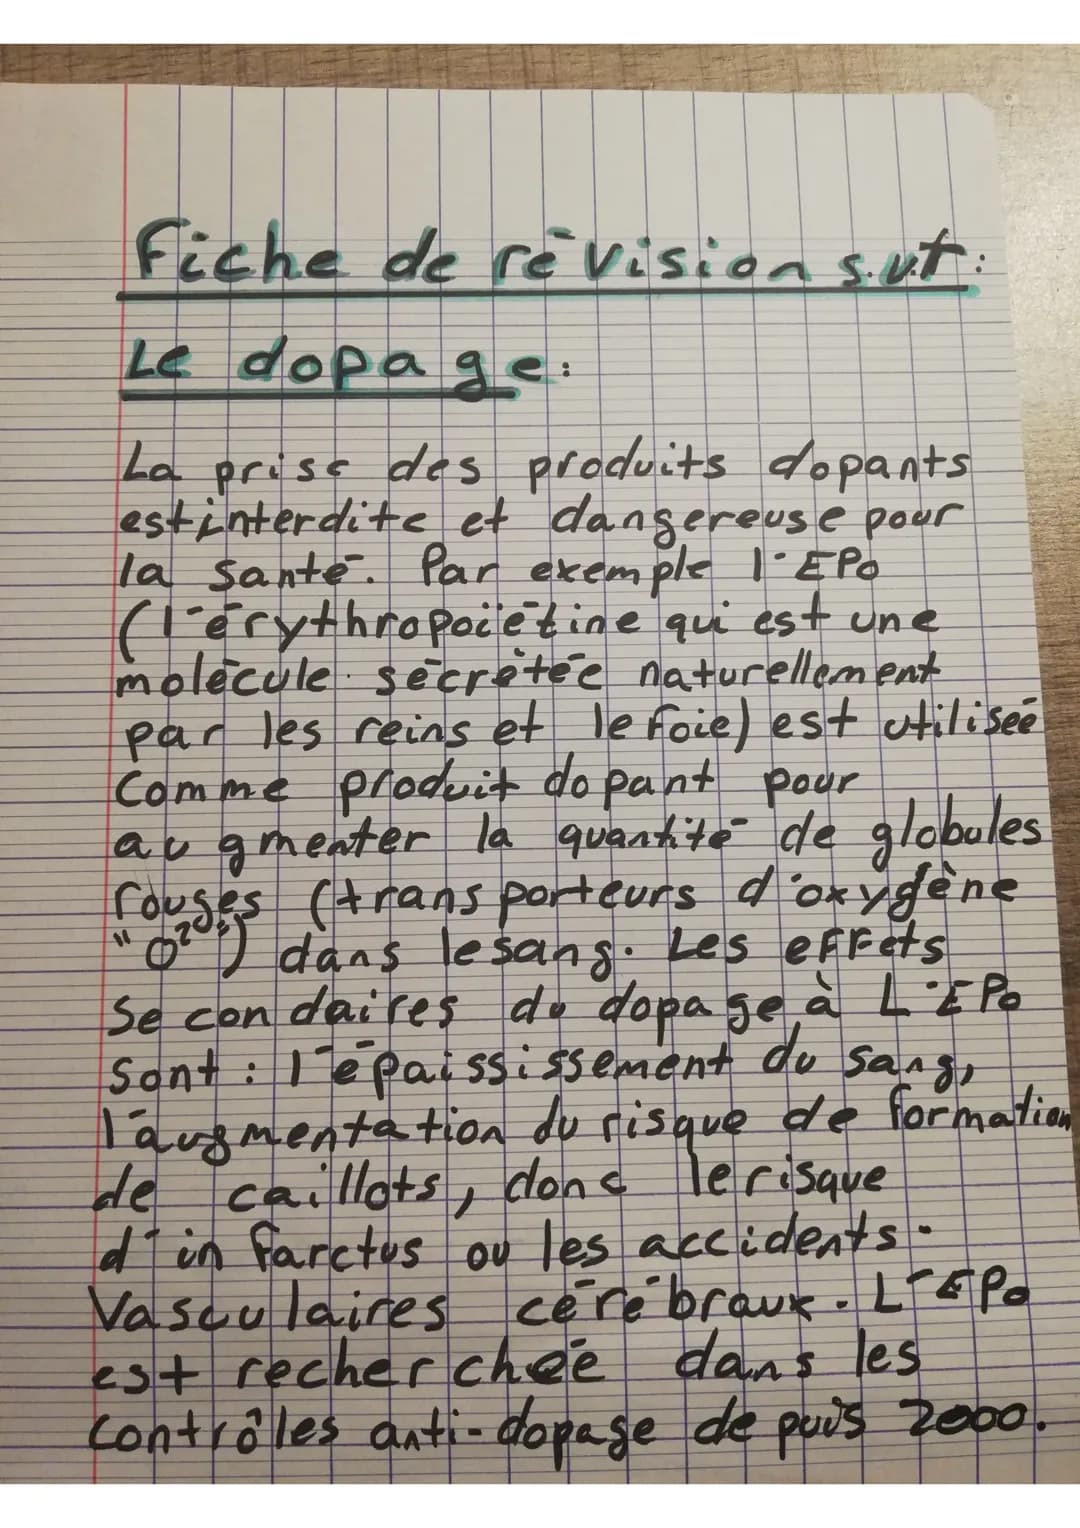 Fiche de révision s.v.t :
Le dopage :
La prise des produits dopants
est interdite et dangereuse pour
la santé. Par exemple l'EPO
(l'érythropoïétine qui est une
molécule sécrétée naturellement
par les reins et le foie) est utilisée
Comme produit dopant pour
augmenter la quantité de globules
rouges (transporteurs d'oxygène
"O²") dans le sang. Les effets
secondaires du dopage à L'EPO
sont : l'épaississement du sang,
l'augmentation du risque de formation
de caillots, donc le risque
d'infarctus ou les accidents-
Vasculaires cérébraux. L'EPO
est recherchée dans les
contrôles anti-dopage depuis 2000.